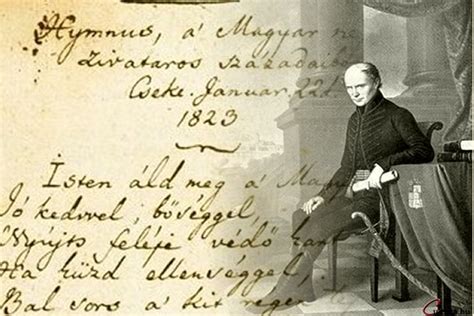 Hymnus, a' Magyar ne
zivataros századaiból
Cseke. Januar. 22d.
1823
Isten áld meg a' Magy
Jó kedvvel, bőséggel,
Nyújts feléje védő kart
Ha küzd ellenséggel,
Bal sors a' kit régen